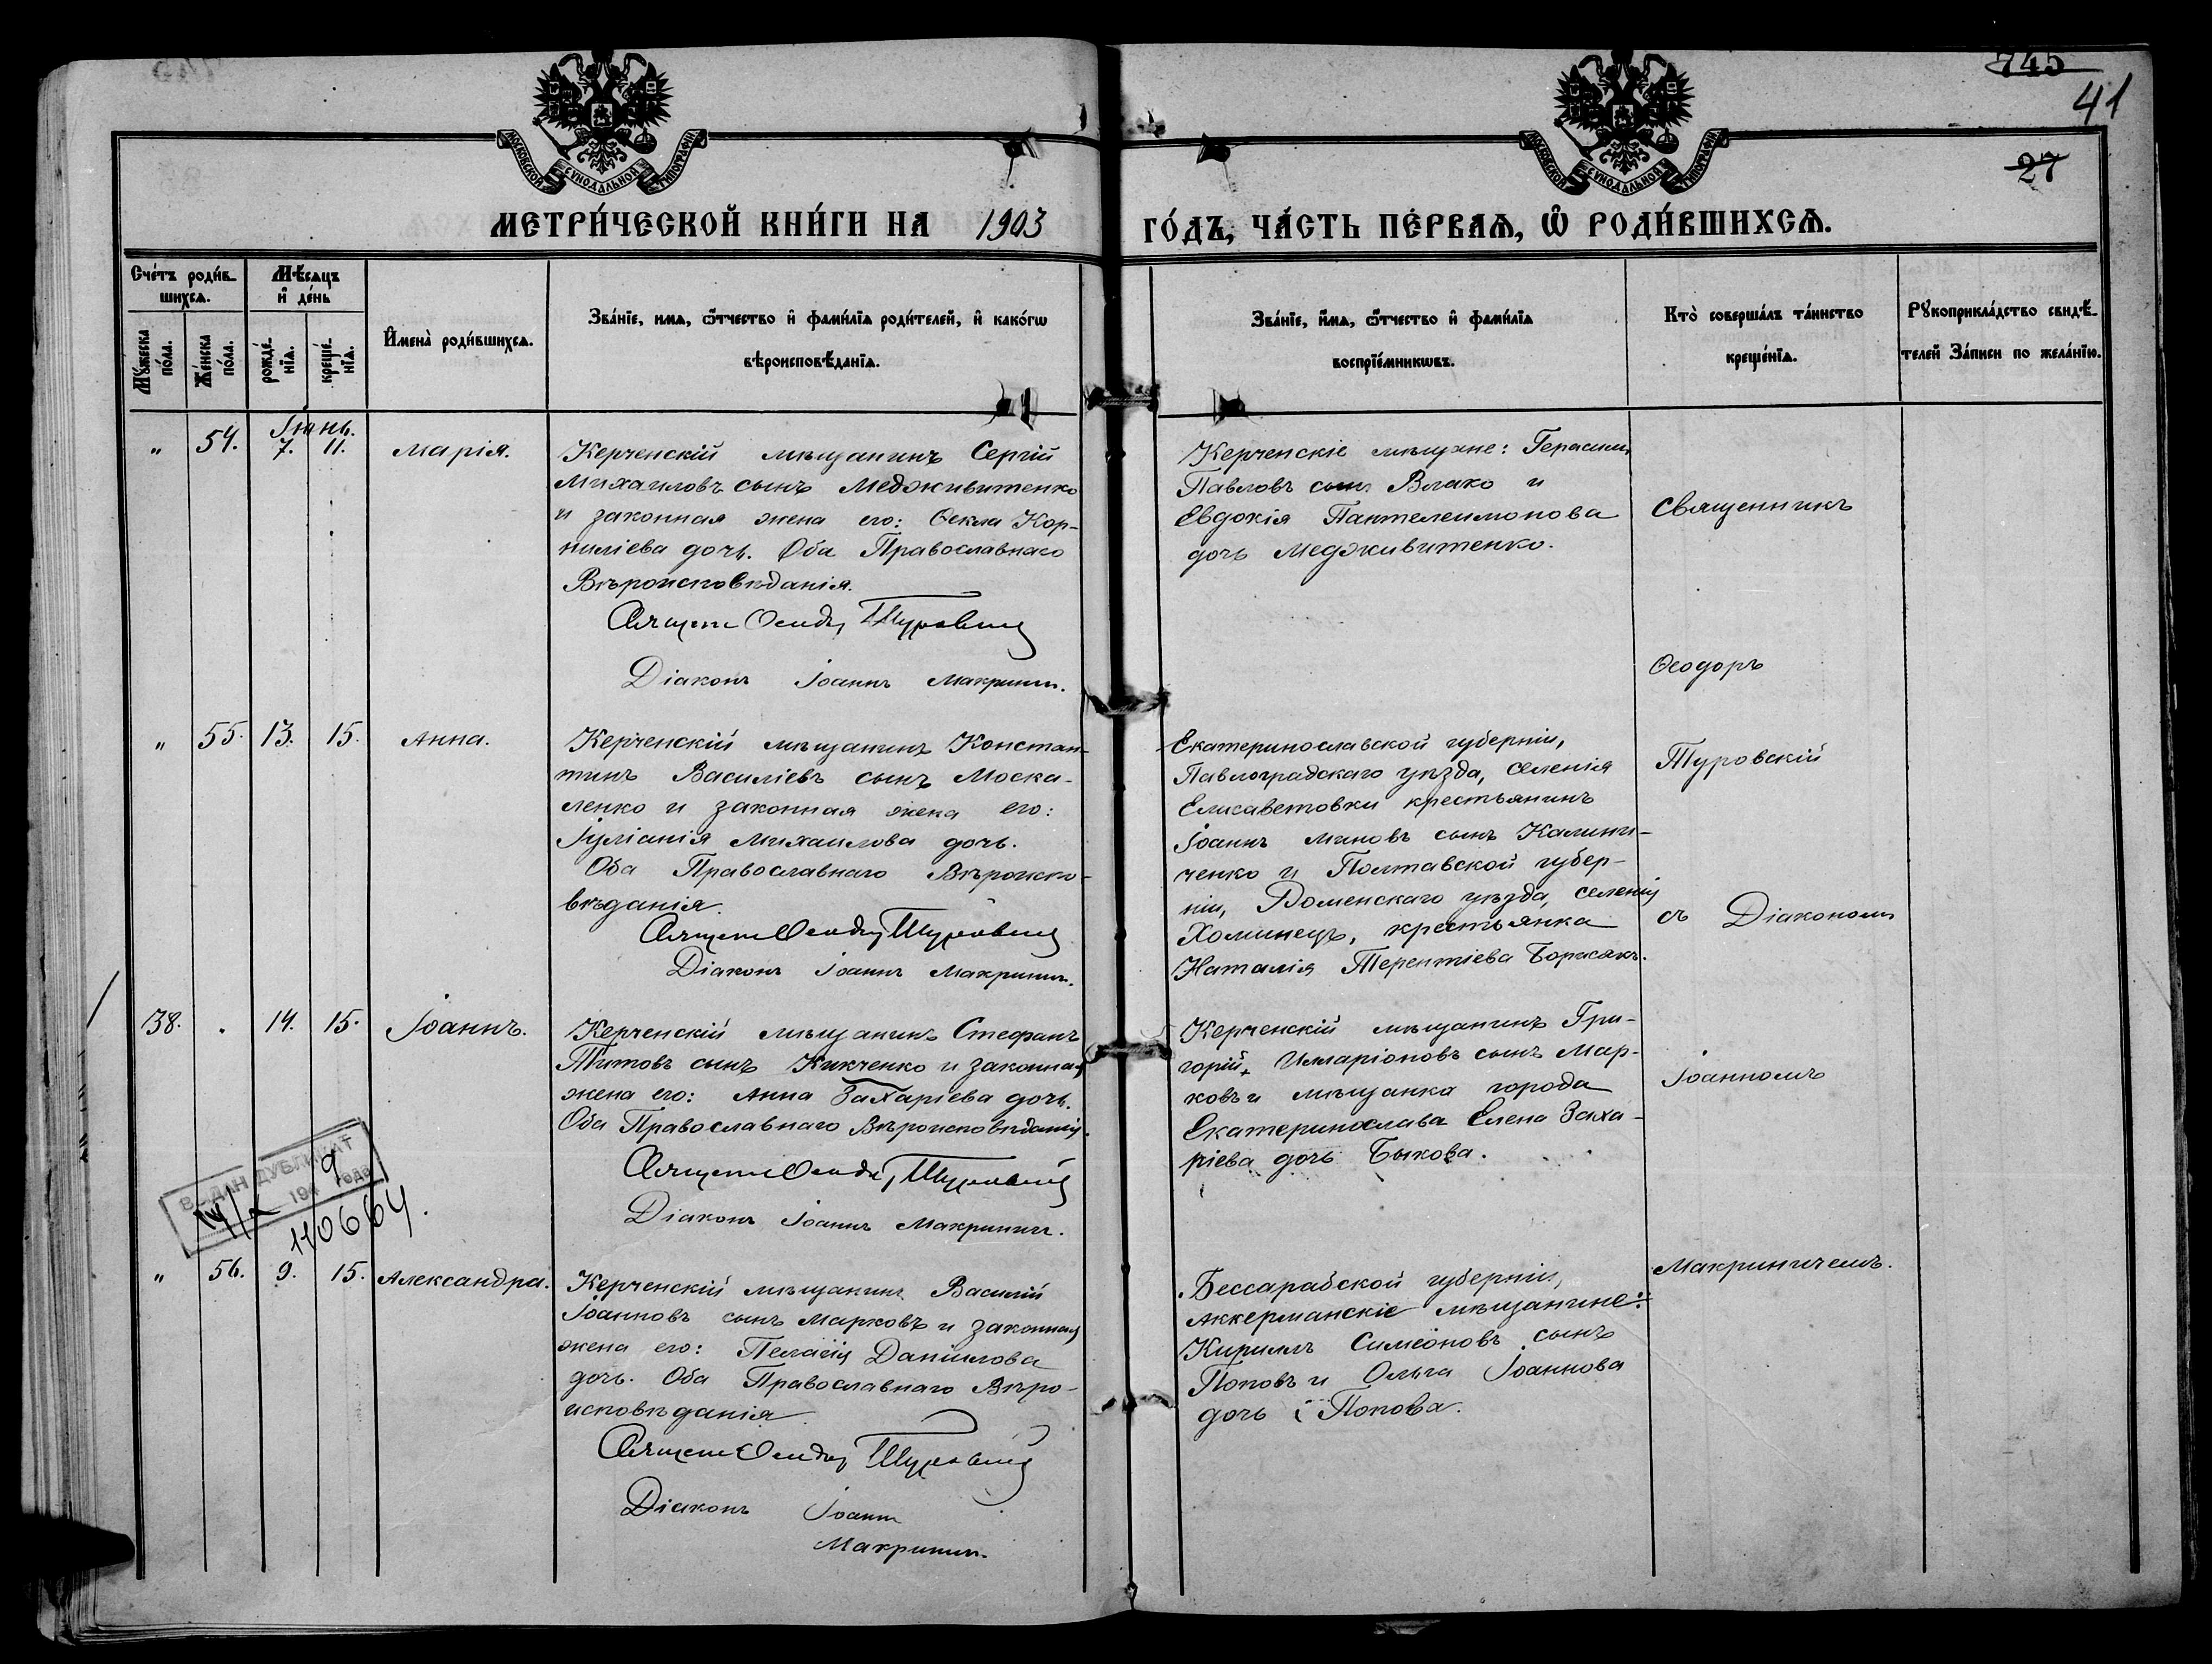 745
41
27
МОСКОВСКОЙ СУНОДАЛЬНОЙ ТИПОГРАФІИ
МОСКОВСКОЙ СУНОДАЛЬНОЙ ТИПОГРАФІИ
МЕТРИ́ЧЕСКОЙ КНИ́ГИ НА 1903 ГО́ДЪ, ЧА́СТЬ ПЕ́РВАѦ, Ѿ РОДИ́ВШИХСѦ.
Сче́тъ роди́в-
шихсѧ.
Мꙋ́жеска по́ла.
Же́нска по́ла.
Мѣ́сяцъ
и҆ де́нь
рожде́-
нїѧ.
креще́-
нїѧ.
И҆мена̀ роди́вшихсѧ.
Зва́нїе, имѧ, ѻ҆́тчество и҆ фами́лїѧ роди́телей, и҆ како́гѡ
вѣроисповѣ́данїѧ.
Зва́нїе, и҆́мѧ, ѻ҆́тчество и҆ фами́лїѧ
воспрїе́мникѡвъ.
Кто̀ соверша́лъ та́инство
креще́нїѧ.
Рꙋкоприкла́дство свидѣ́-
телей За́писи по жела́нїю.
Іюнь.
" 54. 7. 11. Марія.
Керченскій мѣщанинъ Сергій
Михаиловъ сынъ Медживитенко
и законная жена его: Ѳекла Кор-
ниліева дочь. Оба Православнаго
Вѣроисповѣданія.
Туровскій
Діаконъ Іоаннъ Макринич.
Керченскіе мѣщане: Герасимъ
Павловъ сынъ Влахо и
Евдокія Пантелеимонова
дочь Медживитенко.
Священникъ
Ѳеодоръ
Туровскій
съ Діакономъ
Іоанномъ
Макриничемъ.
" 55. 13. 15. Анна.
Керченскій мѣщанинъ Констан-
тинъ Василіевъ сынъ Моска-
ленко и законная жена его:
Іуліанія Михаилова дочь.
Оба Православнаго Вѣроиспо-
вѣданія.
Туровскій
Діаконъ Іоаннъ Макринич.
Екатеринославской губерніи,
Павлоградскаго уѣзда, селенія
Елисаветовки крестьянинъ
Іоаннъ Миновъ сынъ Калини-
ченко и Полтавской губер-
ніи, Роменскаго уѣзда, селенія
Хоминецъ, крестьянка
Наталія Терентіева Борисякъ.
38. . 14. 15. Іоаннъ.
Керченскій мѣщанинъ Стефанъ
Титовъ сынъ Кикченко и законная
жена его: Анна Захаріева дочь.
Оба Православнаго Вѣроисповѣданія.
Туровскій
Діаконъ Іоаннъ Макринич.
Керченскій мѣщанинъ Гри-
горій Иларіоновъ сынъ Мар-
ковъ и мѣщанка города
Екатеринослава Елена Заха-
ріева дочь Быкова.
ВЫДАН ДУБЛИКАТ
194 9 года
110664.
" 56. 9. 15. Александра.
Керченскій мѣщанинъ Василій
Іоанновъ сынъ Марковъ и законная
жена его: Пелагія Даніилова
дочь. Оба Православнаго Вѣро-
исповѣданія.
Туровскій
Діаконъ Іоаннъ
Макринич.
Бессарабской губерніи,
Аккерманскіе мѣщанине:
Кириллъ Симеоновъ сынъ
Поповъ и Ольга Іоаннова
дочь Попова.